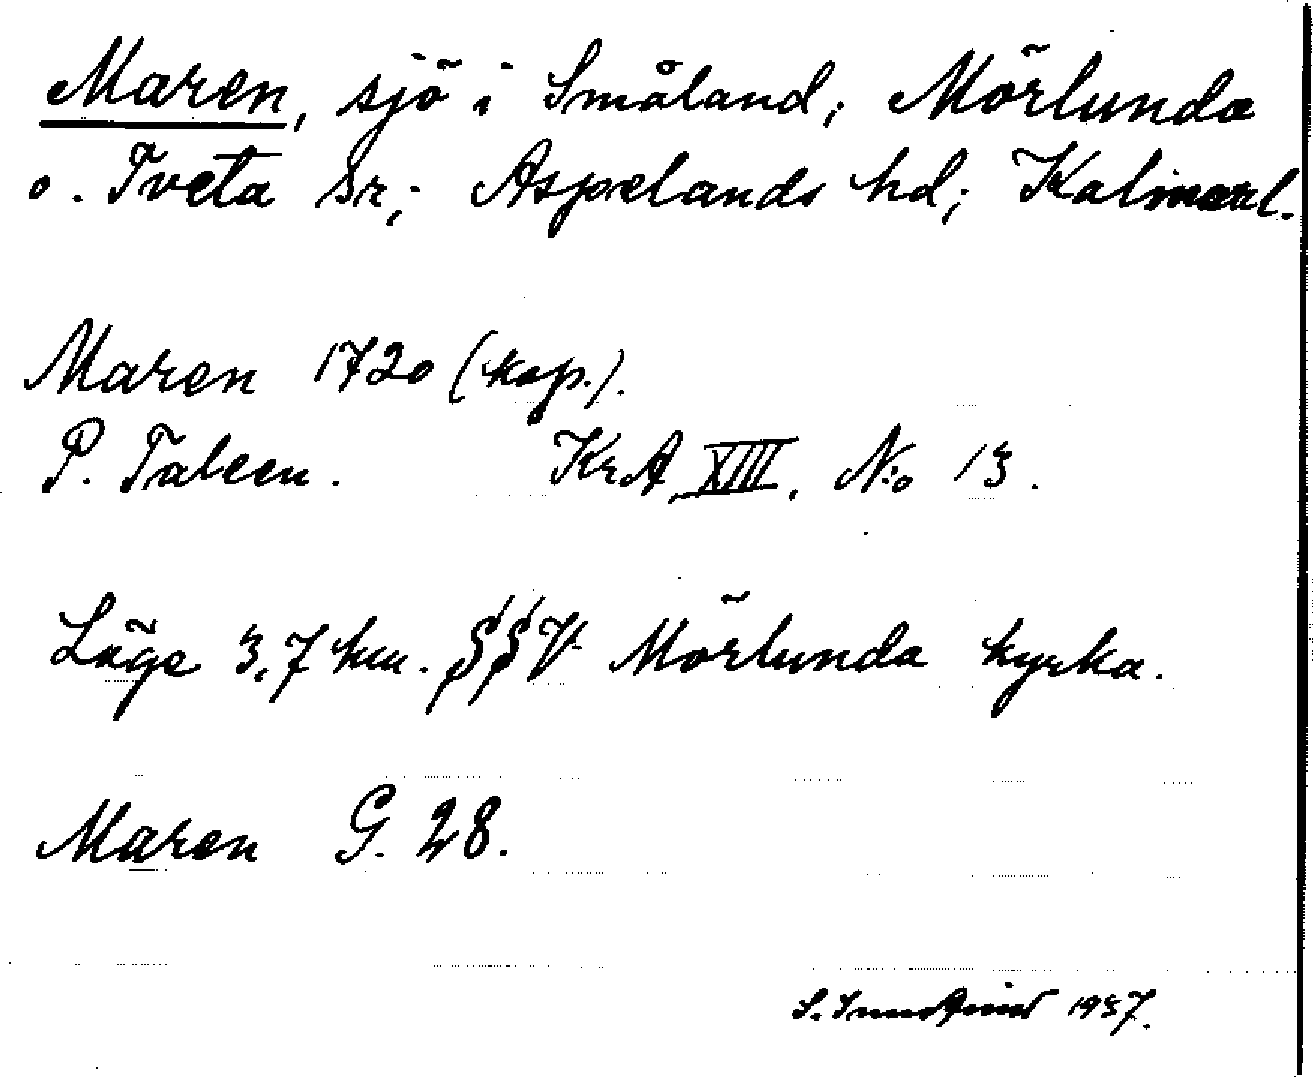 Maren, sjö i Småland; Mörlunda
o. Tveta sr; Aspelands hd; Kalmarl.
Maren 1720 (kop.).
P. Taleen. KrA, XIII, N:o 13.
Läge 3,7 km. SSV Mörlunda kyrka.
Maren G. 28.
S. 1937.